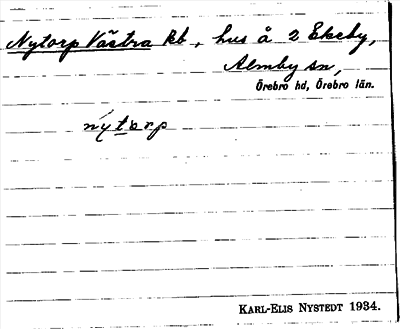 Nytorp Västra kb, hus å 2 Ekeby,
Almby sn,
Örebro hd, Örebro län.
nytorp
KARL-ELIS NYSTEDT 1934.